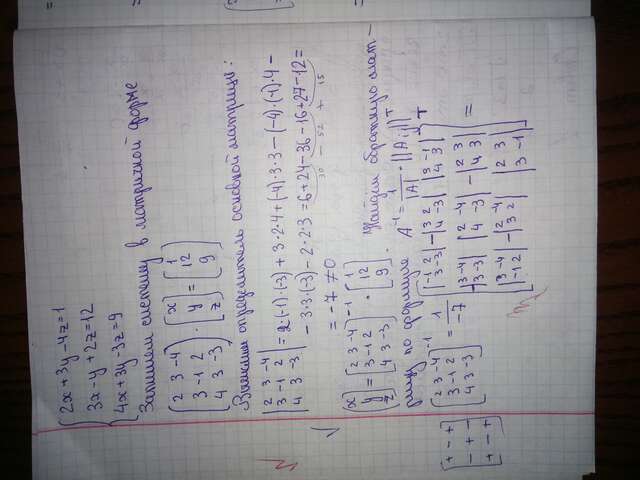 2x+3y-4z=1
3x-y+2z=12
4x+3y-3z=9
Запишем систему в матричной форме
(2 3 -4) (x) (1)
(3 -1 2) · (y) = (12)
(4 3 -3) (z) (9)
Вычислим определитель основной матрицы:
|2 3 -4|
|3 -1 2| = 2·(-1)·(-3)+3·2·4+(-4)·3·3-(-4)·(-1)·4-
|4 3 -3|
-3·3·(-3)-2·2·3=6+24-36-16+27-12=
30 - 52 + 15
=-7≠0
(x) (2 3 -4)-1 (1)
(y) = (3 -1 2) · (12)
(z) (4 3 -3) (9) . Найдём обратную мат-
рицу по формуле A-1 = 1/|A| · ||A i j||T
(2 3 -4)-1
(3 -1 2) = 1/-7
(4 3 -3)
|-1 2| -|3 2| |3 -1| T
|3 -3| |4 -3| |4 3|
-|3 -4| |2 -4| -|2 3|
|3 -3| |4 -3| |4 3| =
|3 -4| -|2 -4| |2 3|
|-1 2| |3 2| |3 -1|
+ - +
- + -
+ - +